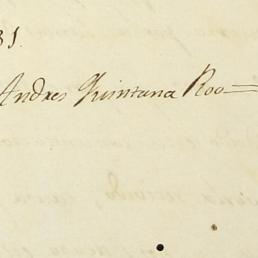 31.
Andres Quintana Roo=